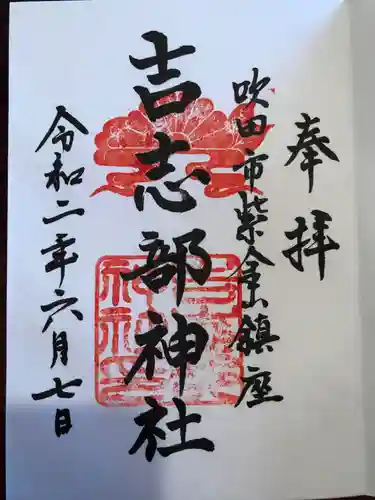 奉拝
吹田市紫金山鎮座
吉志部神社
令和二年六月七日